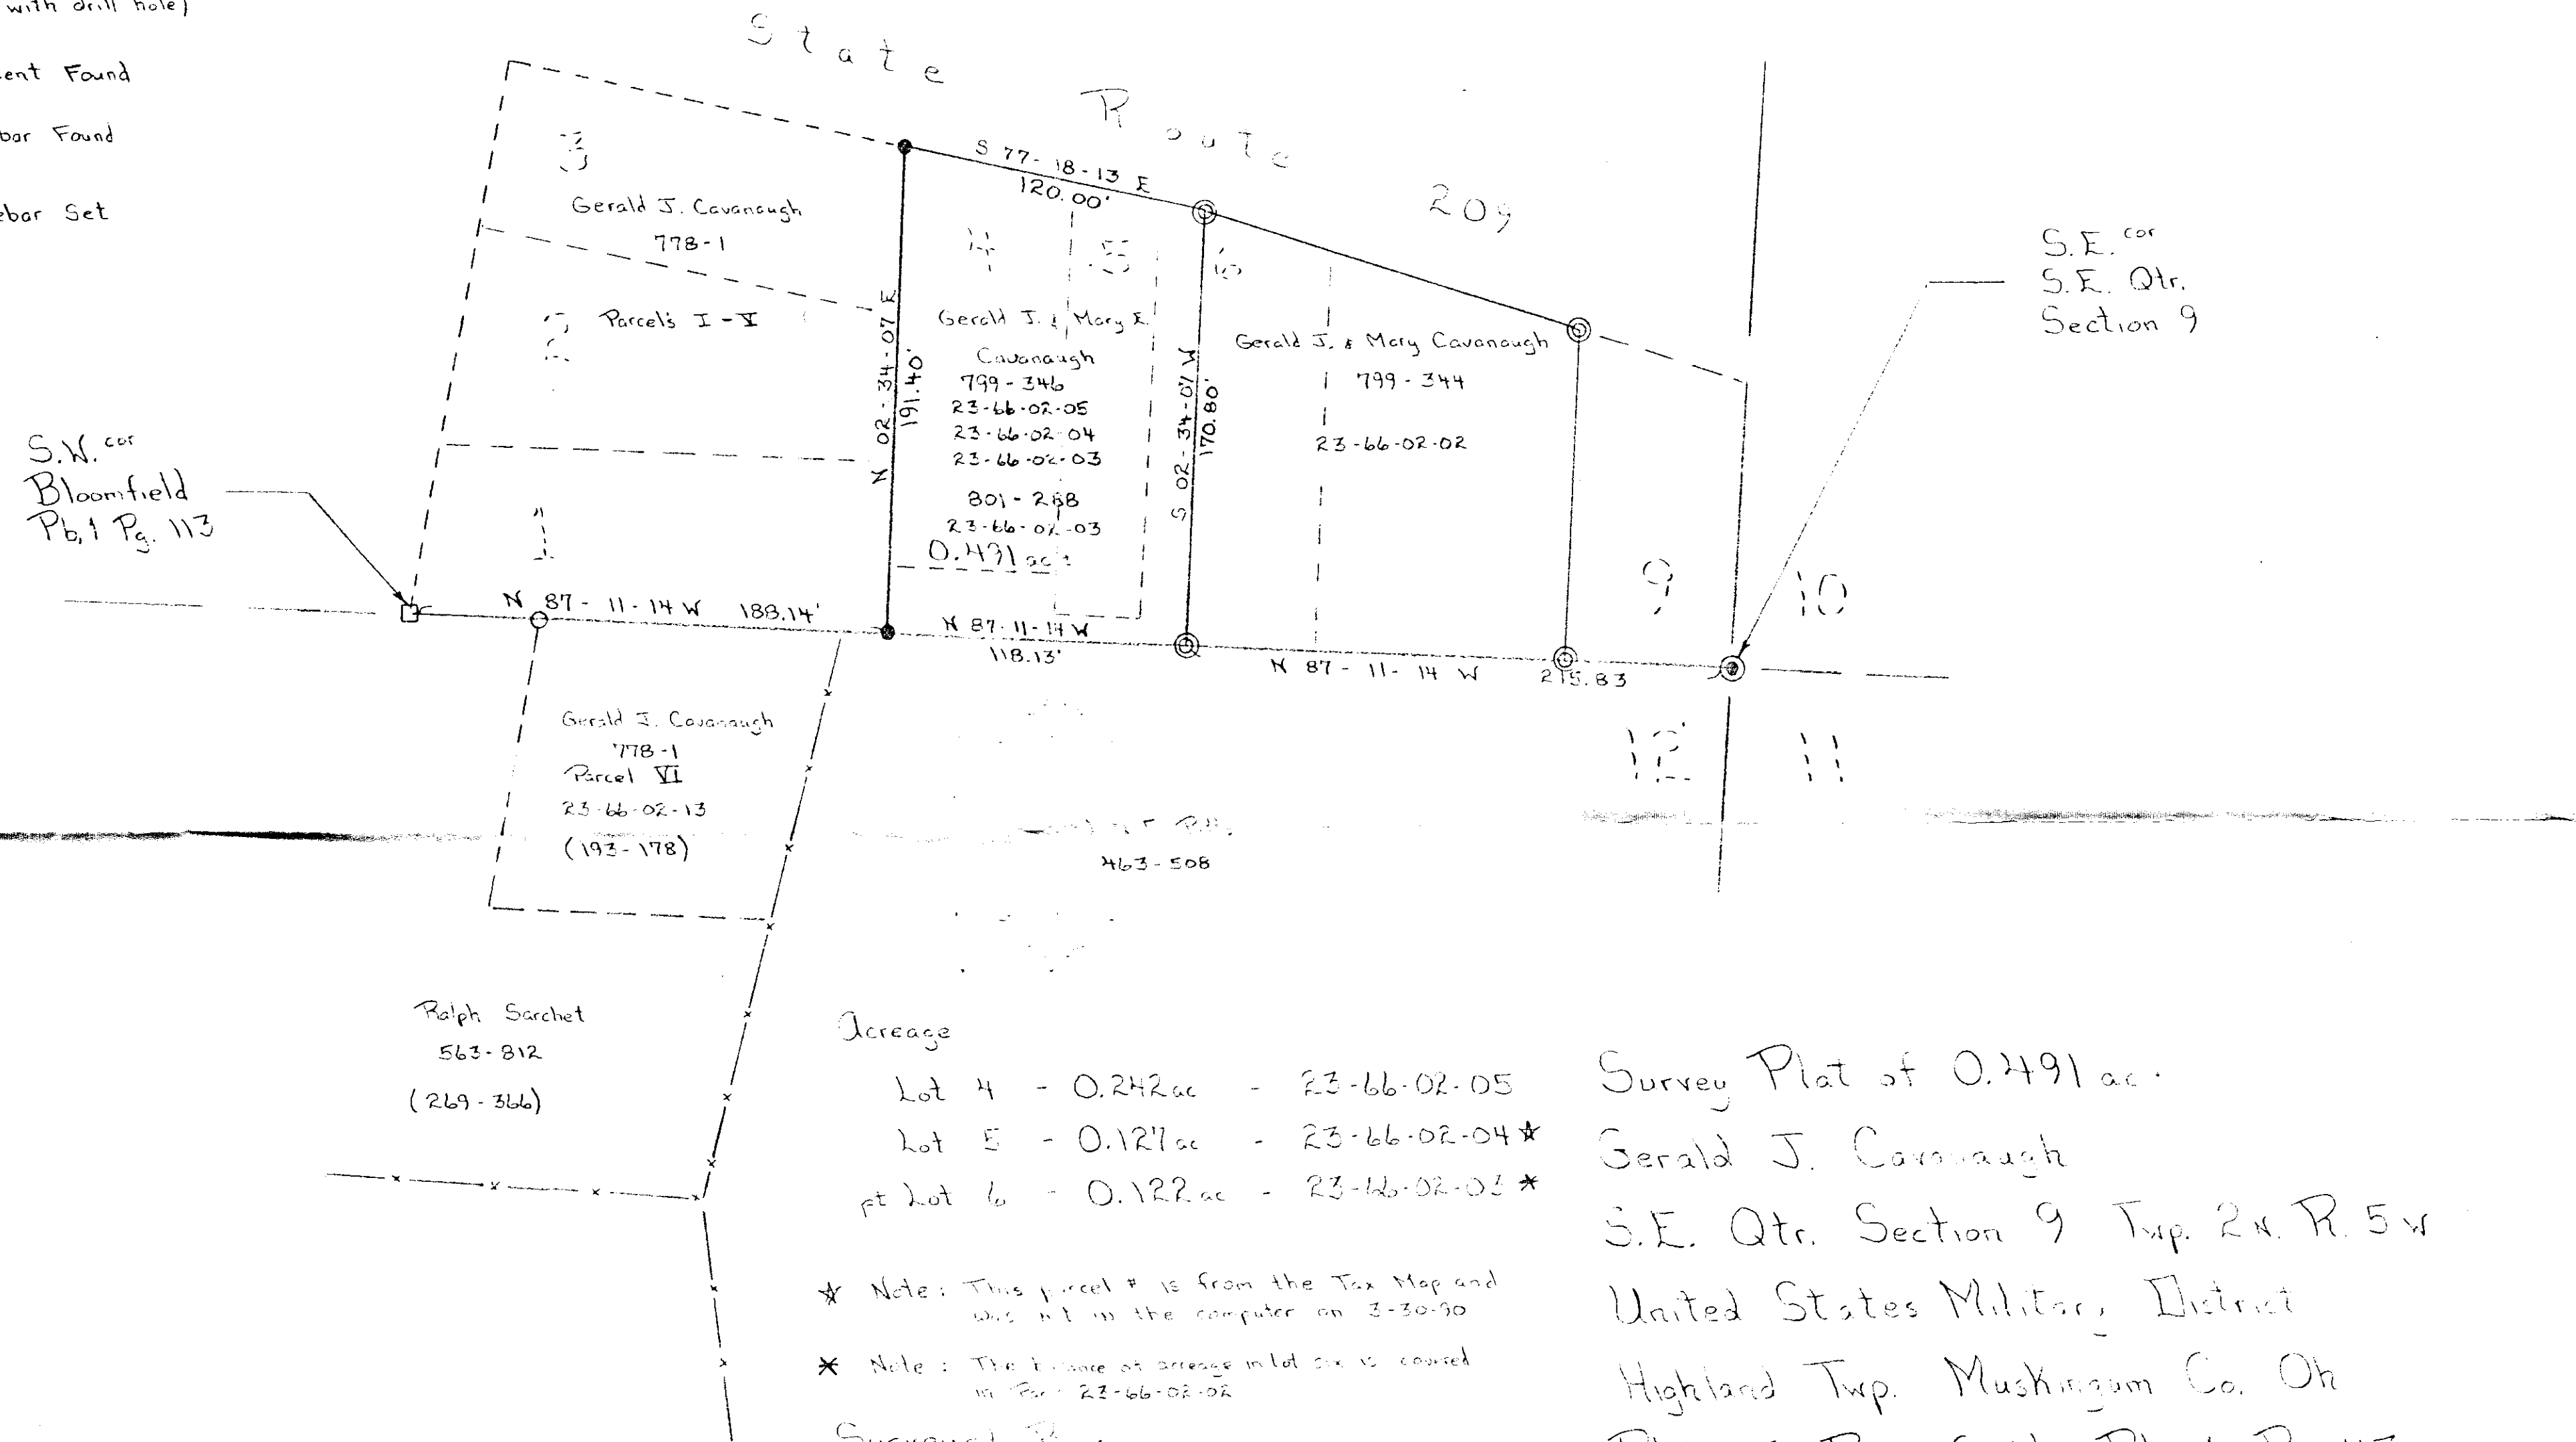 with drill hole)
ent Found
bar Found
ebar Set
State Route 209
S 77-18-13 E
120.00'
3
Gerald J. Cavanaugh
778-1
2
Parcel's I - V
1
N 02-34-07 E
191.40'
4
5
6
Gerald J. & Mary E.
Cavanaugh
799-346
23-66-02-05
23-66-02-04
23-66-02-03
801-268
23-66-02-03
0.491 ac
S 02-34-07 W
170.80'
Gerald J. & Mary Cavanaugh
799-344
23-66-02-02
S.E. cor
S.E. Qtr.
Section 9
S.W. cor
Bloomfield
Pb. 1 Pg. 113
9
10
12
11
N 87-11-14 W 188.14'
N 87-11-14 W
118.13'
N 87-11-14 W 215.83
Gerald J. Cavanaugh
778-1
Parcel VI
23-66-02-13
(193-178)
463-508
Ralph Sarchet
563-812
(269-366)
Acreage
Lot 4 - 0.242 ac - 23-66-02-05
Lot 5 - 0.127 ac - 23-66-02-04 ☆
pt Lot 6 - 0.122 ac - 23-66-02-03 *
☆ Note: This parcel # is from the Tax Map and
was not in the computer on 3-30-90
* Note: The balance of acreage in lot six is covered
in Par 23-66-02-02
Survey Plat of 0.491 ac.
Gerald J. Cavanaugh
S.E. Qtr. Section 9 Twp. 2 N. R. 5 W
United States Military District
Highland Twp. Muskingum Co. Oh